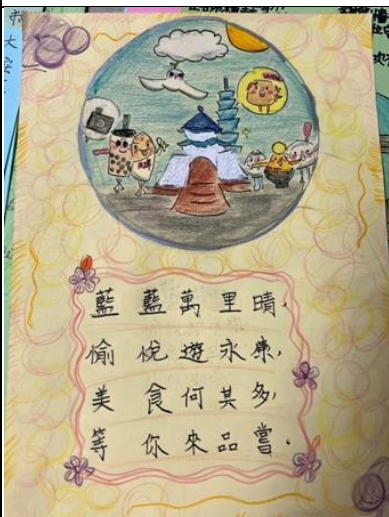 藍藍萬里晴，
愉悅遊永康，
美食何其多，
等你來品嘗。